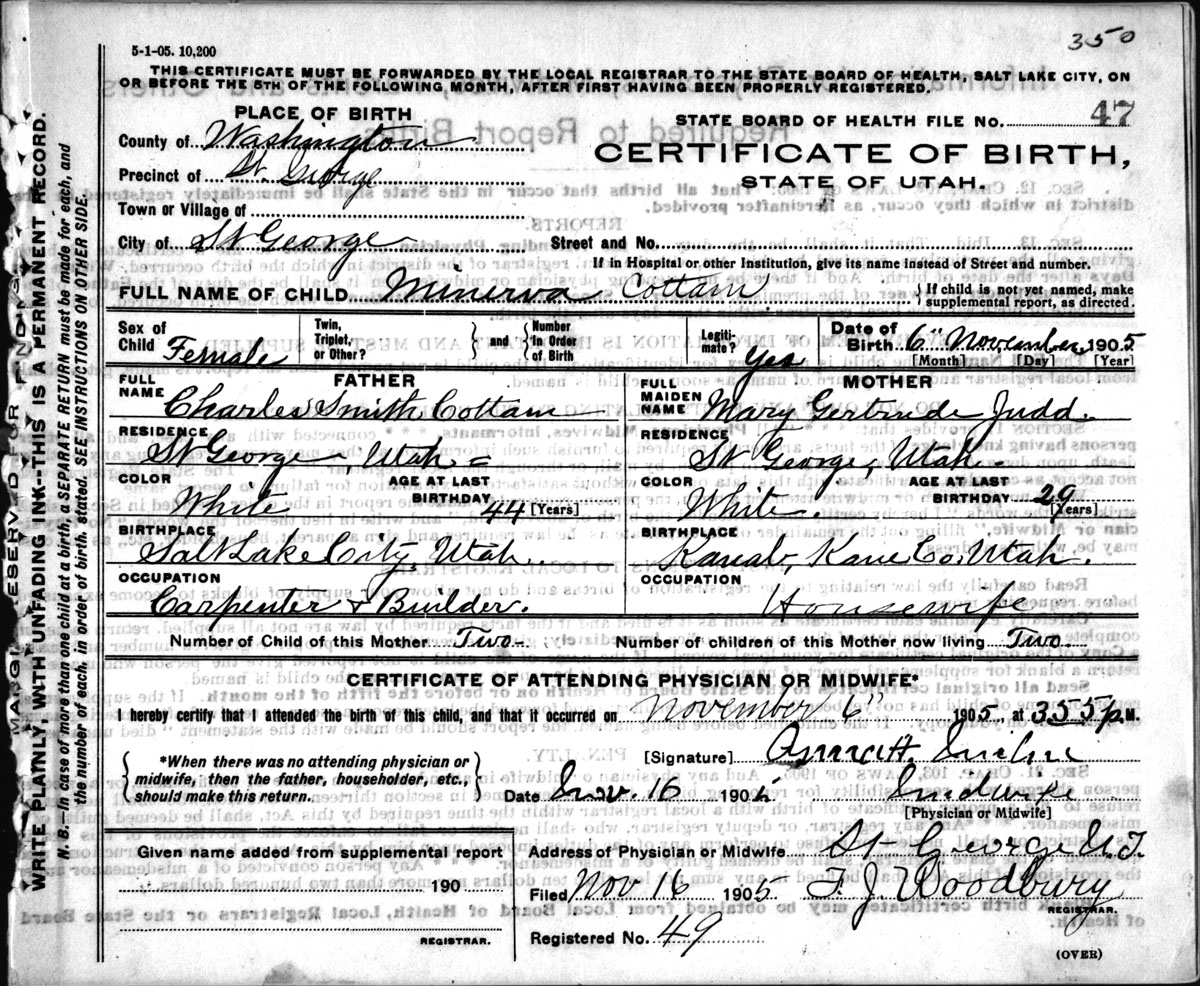 350
5-1-05. 10,200
THIS CERTIFICATE MUST BE FORWARDED BY THE LOCAL REGISTRAR TO THE STATE BOARD OF HEALTH, SALT LAKE CITY, ON
OR BEFORE THE 5TH OF THE FOLLOWING MONTH, AFTER FIRST HAVING BEEN PROPERLY REGISTERED.
PLACE OF BIRTH
STATE BOARD OF HEALTH FILE NO. 47
County of Washington
CERTIFICATE OF BIRTH,
Precinct of St. George
STATE OF UTAH.
Town or Village of
City of St George Street and No.
If in Hospital or other Institution, give its name instead of Street and number.
FULL NAME OF CHILD Minerva Cottam { If child is not yet named, make supplemental report, as directed.
Sex of Child Female
Twin, Triplet, or Other? } and { Number in Order of Birth
Legiti-mate? Yes
Date of Birth 6" November 1905
[Month] [Day] [Year]
FATHER
FULL NAME Charles Smith Cottam
RESIDENCE
St George, Utah
COLOR White AGE AT LAST BIRTHDAY 44 [Years]
BIRTHPLACE
Salt Lake City, Utah.
OCCUPATION
Carpenter & Builder.
MOTHER
FULL MAIDEN NAME Mary Gertrude Judd.
RESIDENCE
St George, Utah.
COLOR White. AGE AT LAST BIRTHDAY 29 [Years]
BIRTHPLACE
Kanab, Kane Co. Utah.
OCCUPATION
Housewife
Number of Child of this Mother Two. Number of children of this Mother now living Two.
CERTIFICATE OF ATTENDING PHYSICIAN OR MIDWIFE*
I hereby certify that I attended the birth of this child, and that it occurred on November 6" 1905, at 355 P. M.
{ *When there was no attending physician or midwife, then the father, householder, etc., should make this return. }
[Signature]
Date Nov. 16 190 Midwife
[Physician or Midwife]
Address of Physician or Midwife St George U.T.
Given name added from supplemental report
190
REGISTRAR.
Filed Nov 16 1905 F. J. Woodbury
REGISTRAR.
Registered No. 49
(OVER)
MARGIN RESERVED FOR BINDING
WRITE PLAINLY, WITH UNFADING INK--THIS IS A PERMANENT RECORD.
N. B.—In case of more than one child at a birth, a SEPARATE RETURN must be made for each, and
the number of each, in order of birth, stated. SEE INSTRUCTIONS ON OTHER SIDE.